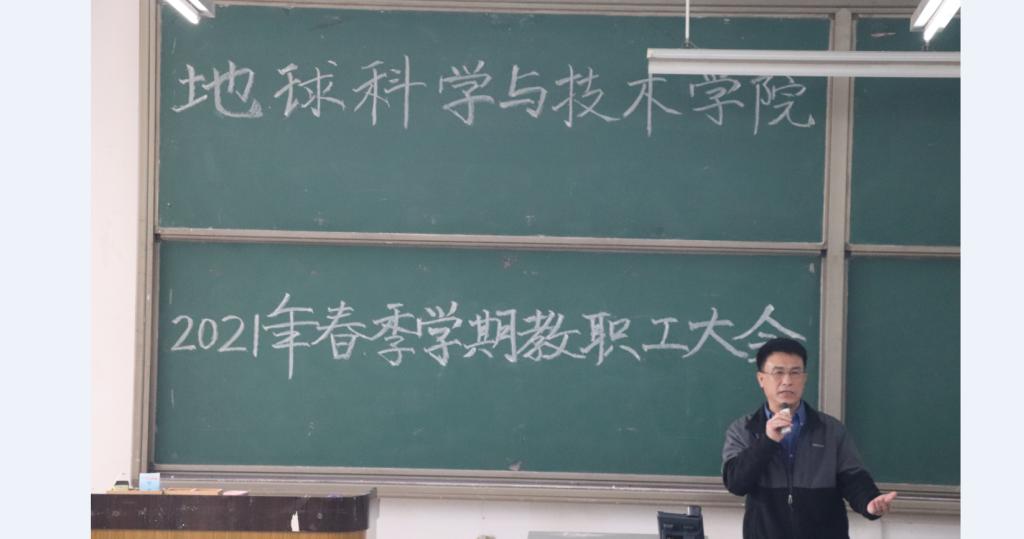 地球科学与技术学院
2021年春季学期教职工大会